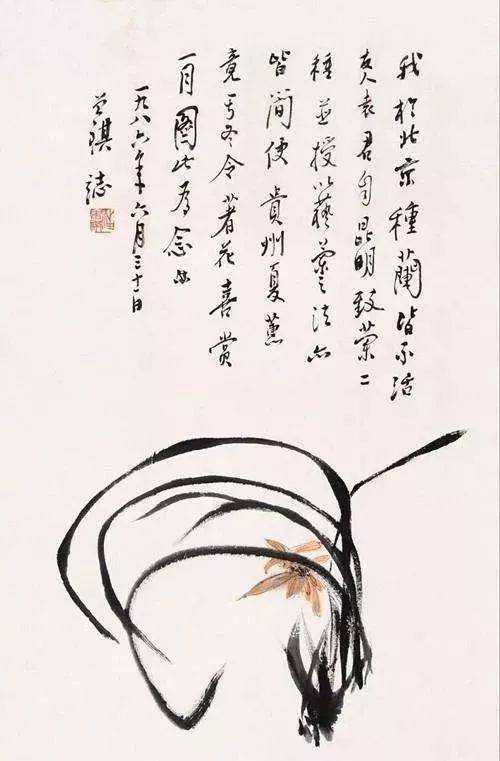 我于北京種蘭皆不活
友人袁君自昆明致蘭二
種並授以藝蘭之法亦
皆簡便貴州夏蕙
竟于冬令著花喜賞
一月圖此為念也
一九八六年六月三十一日
曾祺誌